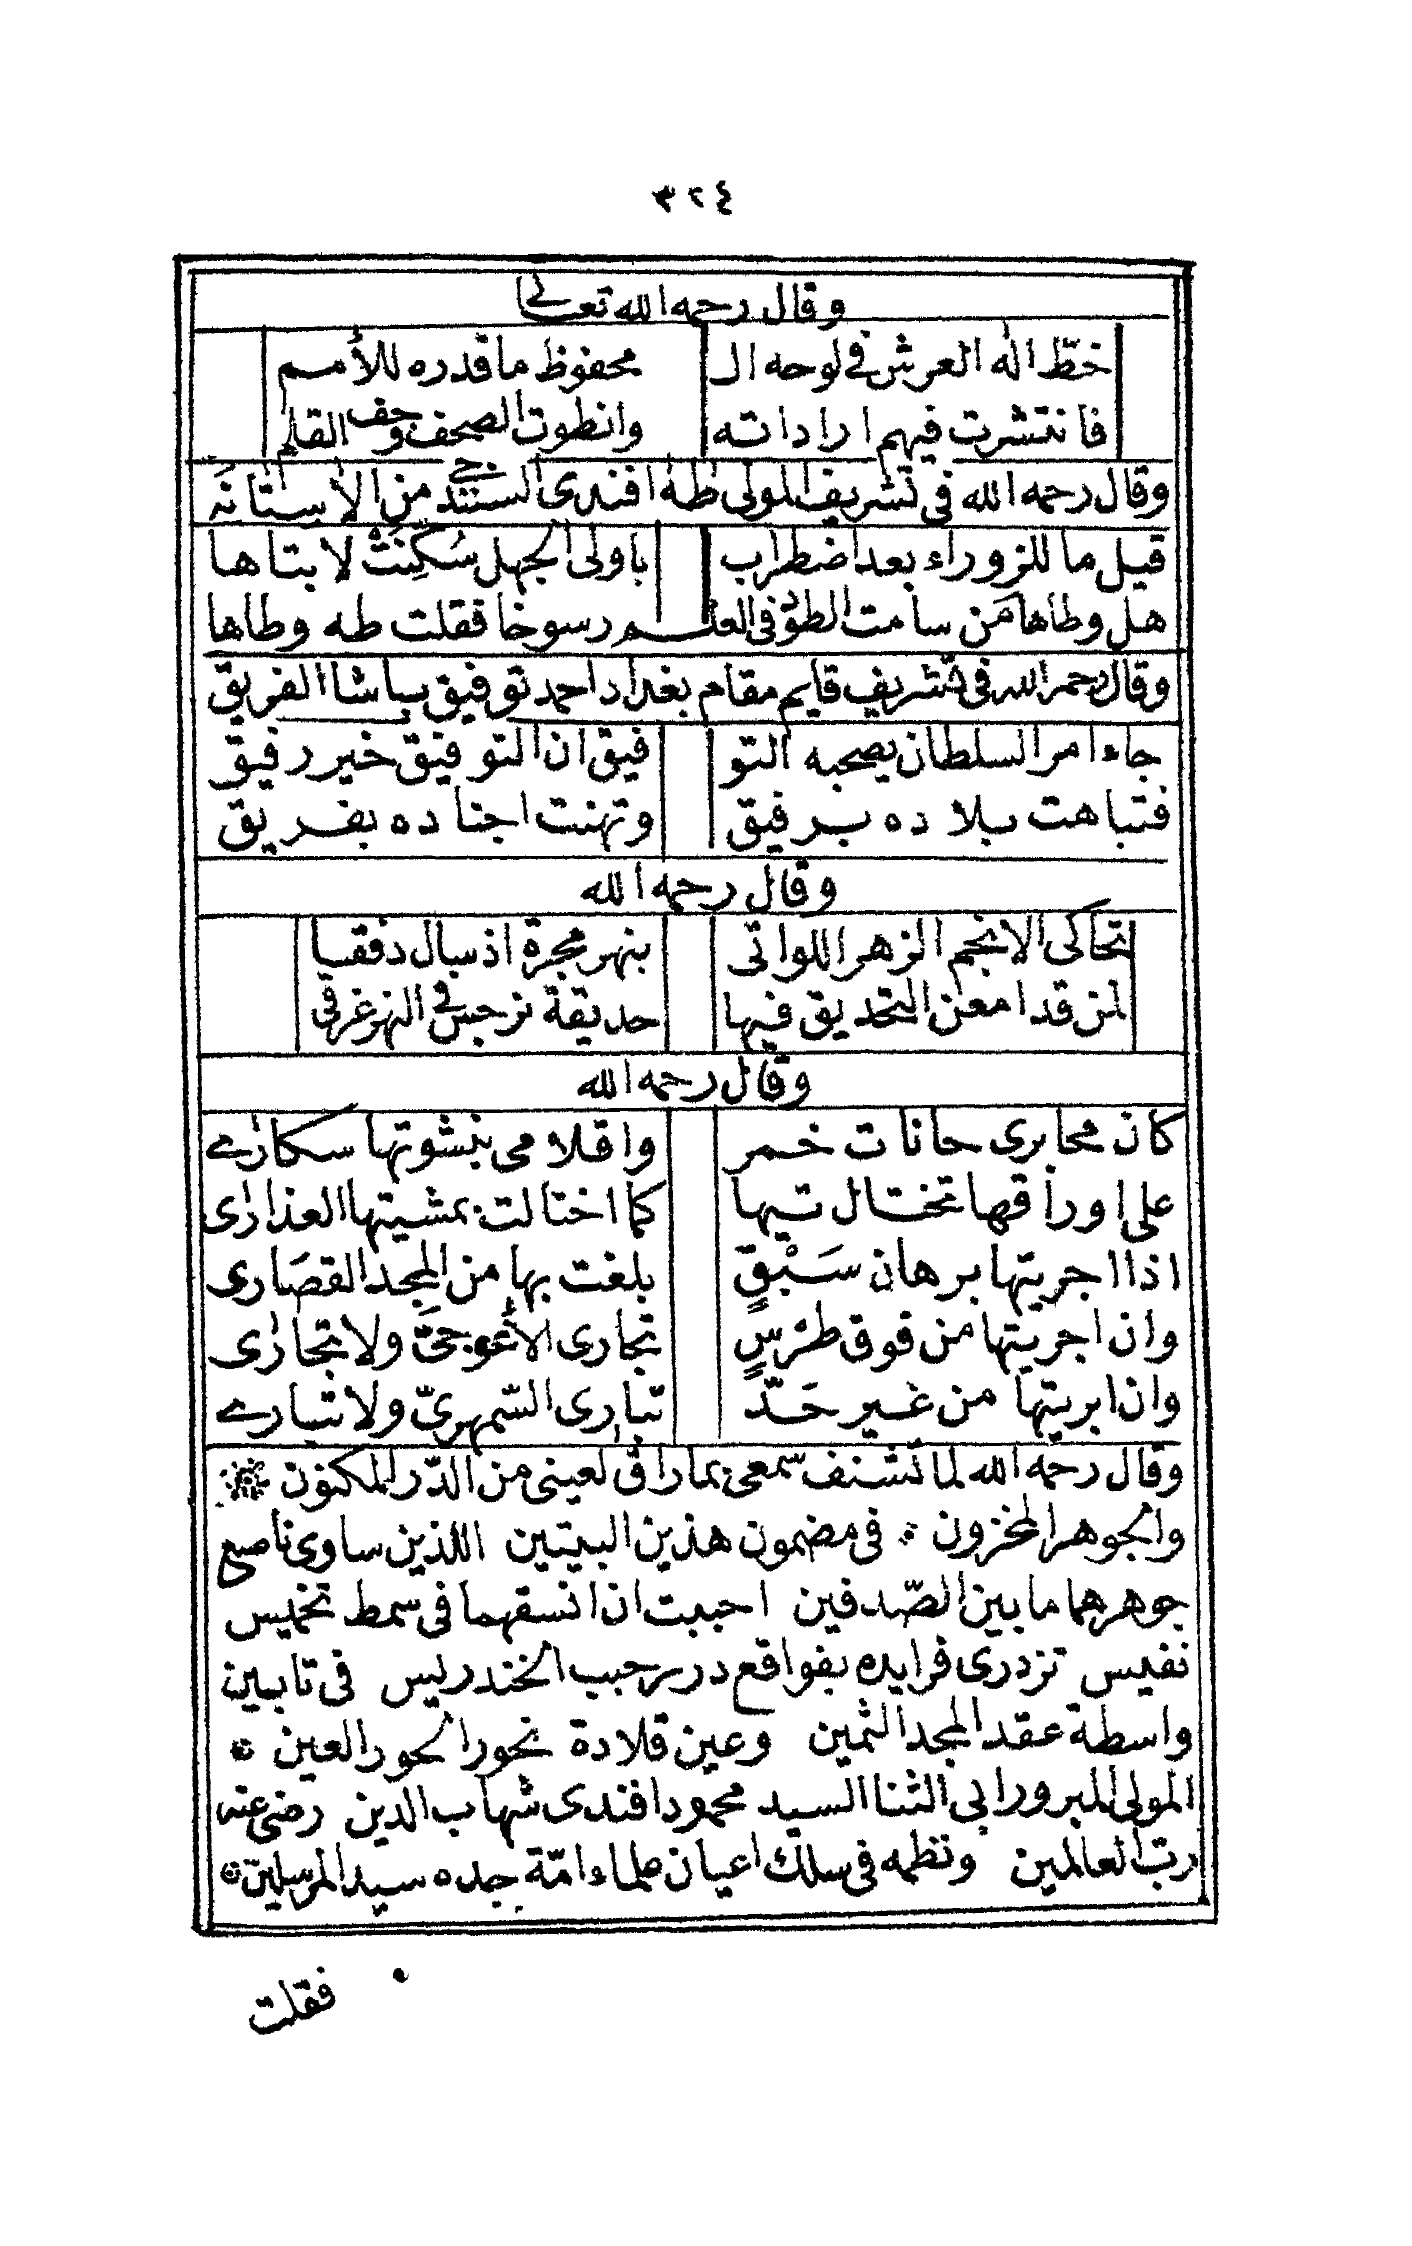 ٣٢٤
وقال رحمه الله تعالى
خطّ اله العرش في لوحه ال محفوظ ما قدره للأمم
فانتشرت فيهم اراداته وانطوت الصحف وجف القلم
وقال رحمه الله في تشريف المولى طه افندى السنندجي من الاستانة
قيل ما للزوراء بعد اضطراب باولى الجهل سُكِّنَتْ لابتاها
هل وطاها مَن سامت الطود في العلم رسوخا فقلت طه وطاها
وقال رحمه الله في تشريف قايم مقام بغداد احمد توفيق باشا الفريق
جاء امر السلطان يصحبه التو فيق ان التوفيق خير رفيق
فتباهت بلاده برفيق وتهنت اجناده بفريق
وقال رحمه الله
تحاكى الانجم الزهر اللواتى بنهر مجرة اذ سال دفقا
لمن قد امعن التحديق فيها حديقة نرجس في النهر غرقى
وقال رحمه الله
كان محابرى حانات خمر واقلامى بنشوتها سكارى
على اوراقها تختال تيها كما اختالت بمشيتها العذارى
اذا اجريتها برهان سَبْقٍ بلغت بها من المجد القصارى
وان اجريتها من فوق طرسٍ تجارى الأعوجىّ ولا تجارى
وان ابريتها من غير حَدّ تبارى السّمهرىّ ولا تبارى
وقال رحمه الله لما تشنف سمعى بما راق لعينى من الدّر المكنون
والجوهر المخزون في مضمون هذين البيتين اللذين ساوى ناصع
جوهرهما ما بين الصّدفين احببت ان انسقهما في سمط تخميس
نفيس تزدرى فرايده بفواقع درر حبب الخندريس في تابين
واسطة عقد المجد الثمين وعين قلادة نحور الحور العين
المولى المبرور ابى الثنا السيد محمود افندى شهاب الدين رضى عنه
ربّ العالمين ونظمه في سلك اعيان علماء امّة جده سيد المرسلين
فقلت